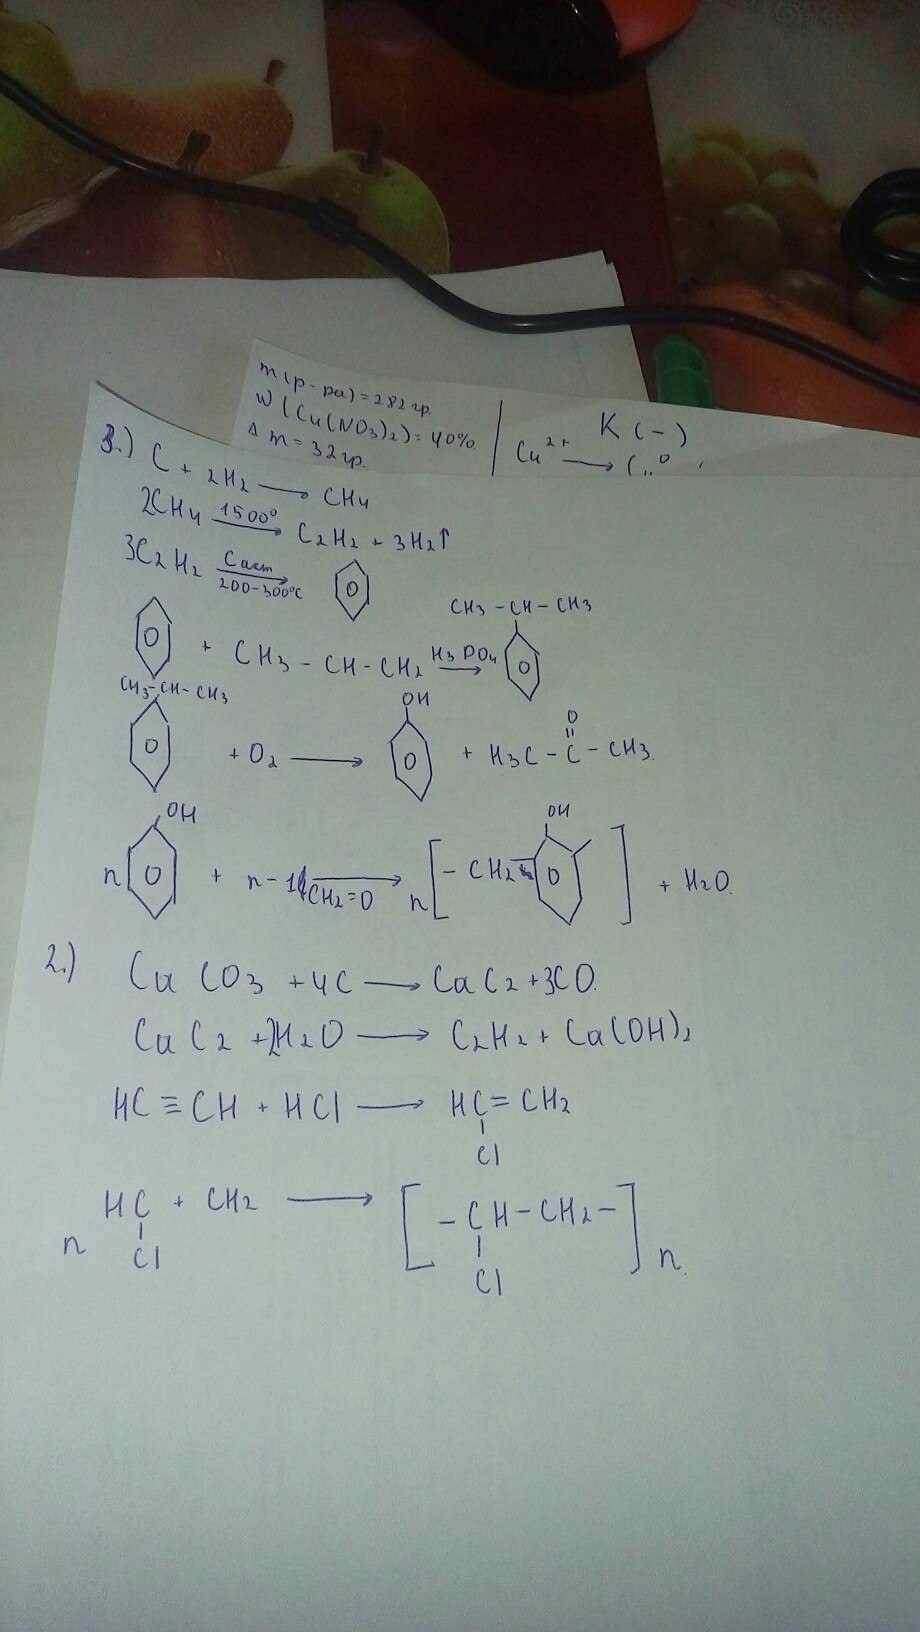 m(р-ра)=282гр.
W(Cu(NO3)2)=40%.
Δm=32гр.
K(-)
Cu²⁺ ⟶ C..⁰
3.) C + 2H2 ⟶ CH4
2CH4 1500° ⟶ C2H2 + 3H2↑
3C2H2 Cакт ⟶ 200-300°C
CH3-CH-CH3
+ CH3-CH-CH2 H3PO4 ⟶
CH3-CH-CH3
OH
+ O2 ⟶ + H3C-C-CH3.
O
OH
OH
n + n-1 CH2=O ⟶ n[-CH2 ] + H2O.
2.) CaCO3 + 4C ⟶ CaC2 + 3CO.
CaC2 + 2H2O ⟶ C2H2 + Ca(OH)2
HC≡CH + HCl ⟶ HC=CH2
Cl
n HC + CH2 ⟶ [-CH-CH2-]n
Cl
Cl